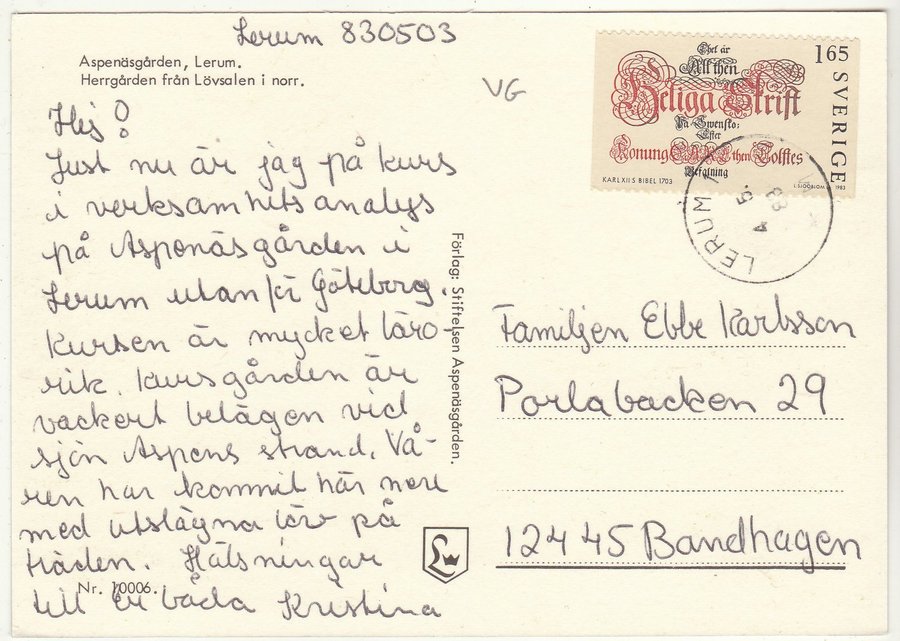 Lerum 830503
Aspenäsgården, Lerum.
Herrgården från Lövsalen i norr.
VG
Hej!
Just nu är jag på kurs
i verksamhetsanalys
på Aspenäsgården i
Lerum utanför Göteborg.
Kursen är mycket läro-
rik. Kursgården är
vackert belägen vid
sjön Aspens strand. Vå-
ren har kommit här nere
med utslagna löv på
träden. Hälsningar
till Er båda Kristina
Nr. 10006.
Förlag: Stiftelsen Aspenäsgården.
L
Thet är
All then
Heliga Skrift
På Swensko:
Efter
Konung CARL then Tolftes
Befalning
KARL XII:S BIBEL 1703
165
SVERIGE
L SJÖÖBLOM
1983
LERUM 1
4 5.
83
Familjen Ebbe Karlsson
Porlabacken 29
12445 Bandhagen